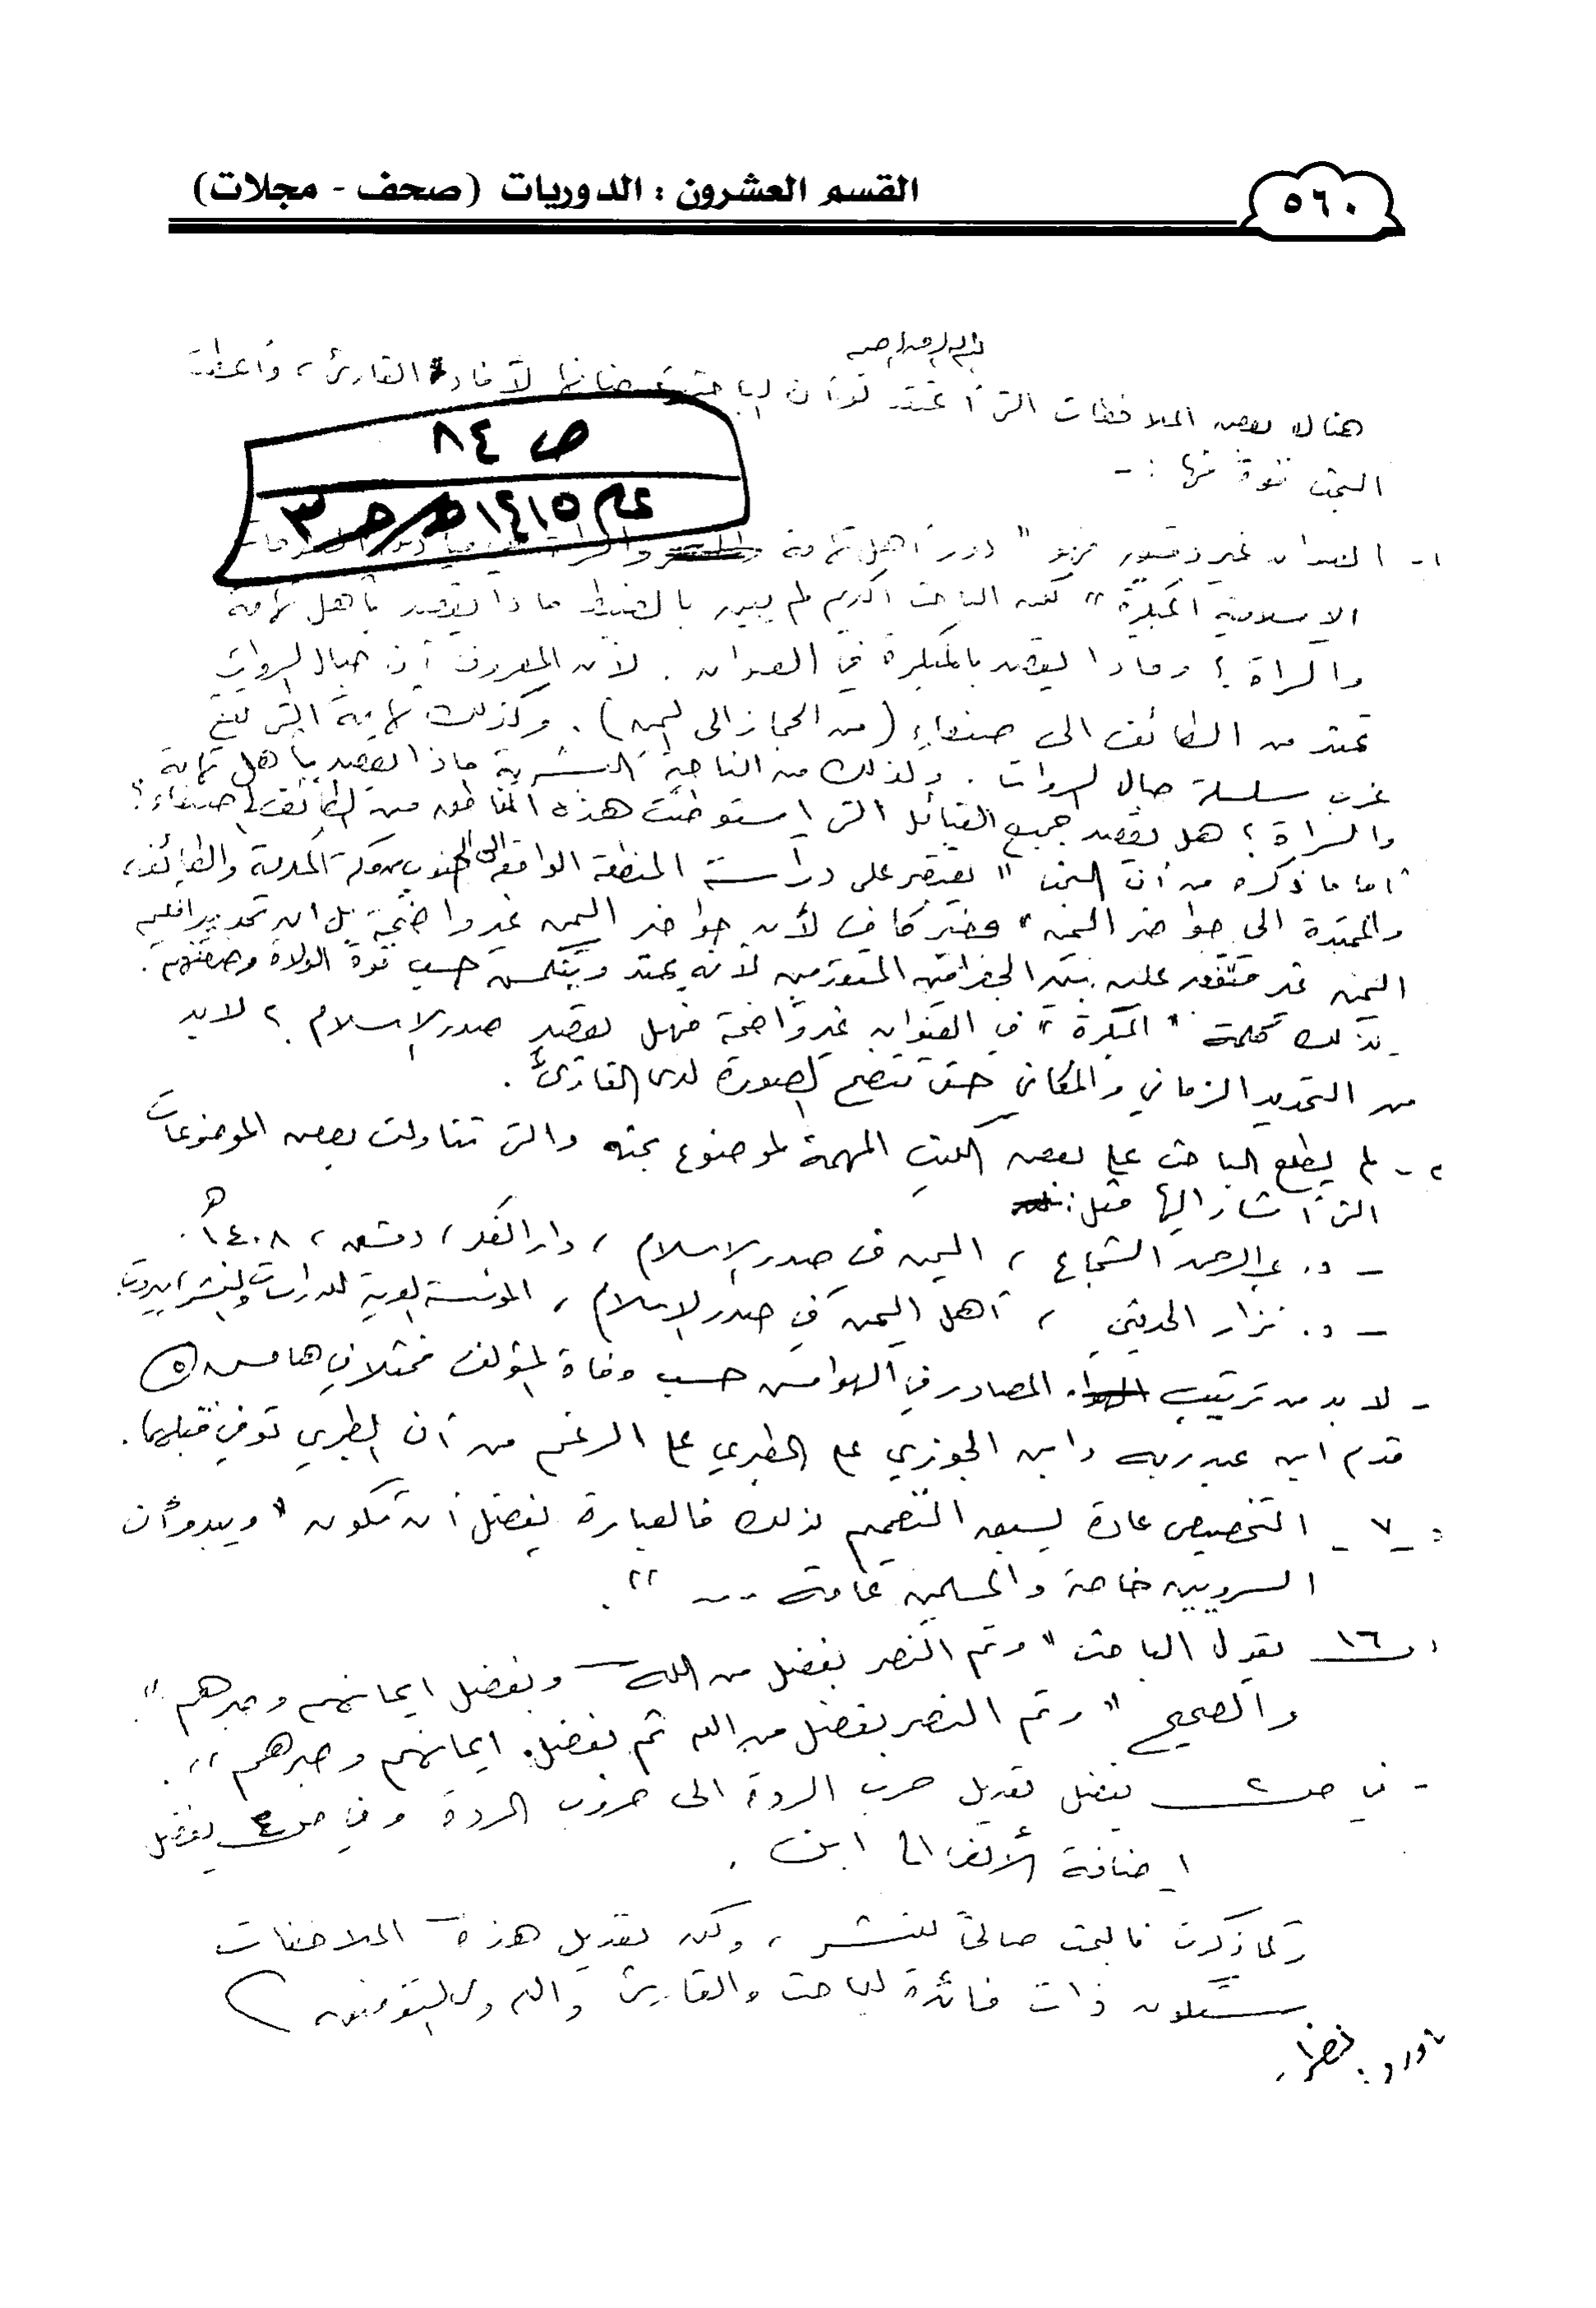 ٥٦٠
القسم العشرون : الدوريات (صحف - مجلات)
هناك بعض الملاحظات التي أعتقد لو أن الباحث لأفاد القارئ، وأعطت
البحث قوة منها :-
ص ٨٤
عام ١٤١٥هـ جـ ٣
١- العنوان غير دقيق فهو " دور أهل تهامة والسراة في ميادين
الإسلامية المبكرة " لكن الباحث الكريم لم يبين بالضبط ماذا يقصد بأهل تهامة
والسراة ؟ وماذا يقصد بالمبكرة في العنوان . لأن المعروف أن جبال السروات
تمتد من الطائف الى صنعاء (من الحجاز الى اليمن) . وكذلك تهامة التي تقع
غرب سلسلة جبال السروات . ولذلك من الناحية البشرية ماذا يقصد بأهل تهامة
والسراة ؟ هل يقصد جميع القبائل التي استوطنت هذه المناطق من الطائف الى صنعاء ؟
أما ما ذكره من أن البحث " يقتصر على دراسة المنطقة الواقعة الى الجنوب من مكة المكرمة والطائف ،
والممتدة الى حواضر اليمن " فغير كاف لأن حواضر اليمن غير واضحة بل ان تحديد اقليم
اليمن غير متفق عليه بين الجغرافيين المتقدمين لأنه يمتد وينكمش حسب قوة الولاة وضعفهم .
كذلك كلمة " المبكرة " في العنوان غير واضحة فهل يقصد صدر الإسلام ؟ لا بد
من التحديد الزماني والمكاني حتى تتضح الصورة لدى القارئ .
٢- لم يطلع الباحث على بعض الكتب المهمة لموضوع بحثه والتي تناولت بعض الموضوعات
التي أشار اليها مثل :
- د. عبدالرحمن الشجاع ، اليمن في صدر الإسلام ، دار الفكر ، دمشق ، ١٤٠٨هـ .
- د. نزار الحديثي ، أهل اليمن في صدر الإسلام ، المؤسسة العربية للدراسات والنشر ، بيروت
- لا بد من ترتيب المصادر في الهوامش حسب وفاة المؤلف فمثلا في هامش (٥)
قدم ابن عبد ربه وابن الجوزي على الطبري على الرغم من أن الطبري توفي قبلهما .
٧ - التخصيص عادة يسبق التعميم لذلك فالعبارة يفضل أن تكون " ويبدو أن
السرويين خاصة والمسلمين عامة ... " .
١٦ يقول الباحث " وتم النصر بفضل من الله وبفضل ايمانهم وصبرهم " .
والصحيح " وتم النصر بفضل من الله ثم بفضل ايمانهم وصبرهم " .
- في ص ٢ يفضل تعديل حرب الردة الى حروب الردة وفي ص ٤ يفضل
اضافة الألف الى ابن .
وكما ذكرت فالبحث صالح للنشر ، ولكن تعديل هذه الملاحظات
ستكون ذات فائدة للباحث والقارئ والله ولي التوفيق